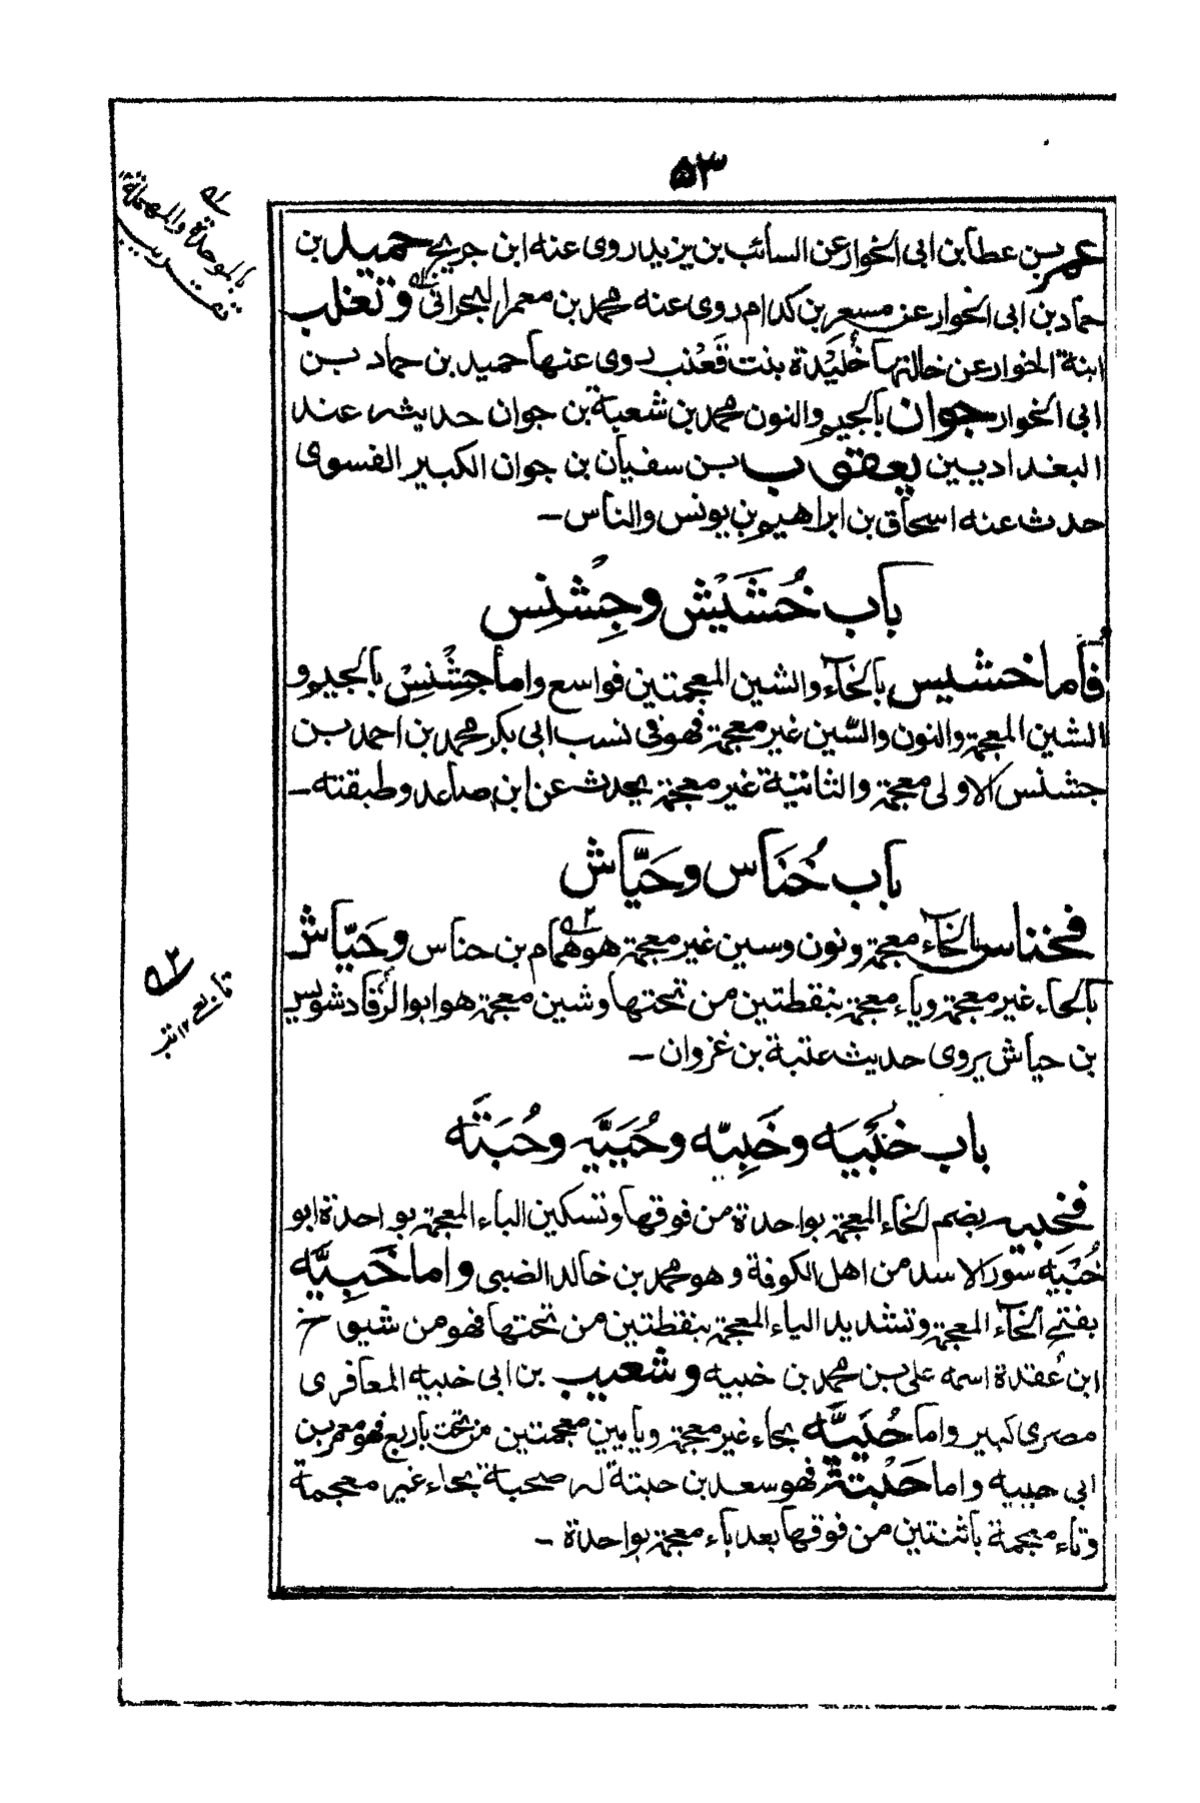 ٥٣
عمر بن عطا بن ابى الخوار عن السائب بن يزيد روى عنه ابن جريج حميد بن
حماد بن ابى الخوار عن مسعر بن كدام روى عنه محمد بن معمر البحرانى وتغلب
ابنة الخوار عن خالتها خُلَيْدة بنت قَعْنب روى عنها حميد بن حماد بن
ابى الخوار جوان بالجيم والنون محمد بن شعبة بن جوان حديثه عند
البغداديين يعقوب بن سفيان بن جوان الكبير الفسوى
حدث عنه اسحاق بن ابراهيم بن يونس والناس –
باب خُشَيْش وجِشْنِس
فأما خشيس بالخاء والشين المعجمتين فواسع واما جِشْنِسْ بالجيم و
الشين المعجمة والنون والسّين غير معجمة فهو فى نسب ابى بكر محمد بن احمد بن
جشنس الاولى معجمة والثانية غير معجمة يحدث عن ابن صاعد وطبقته –
باب خُنَاس وحَيَّاش
فخناس بالخاء معجمة ونون وسين غير معجمة هو همام بن حناس وحَيَّاش
بالحاء غير معجمة وياء معجمة بنقطتين من تحتها وشين معجمة هو ابوالرُّقاد شويس
بن حياش يروى حديث عتبة بن غزوان –
باب خُبْيَه وخَبِيّه وحُيَيَّه وحُبَتَه
فخبيه بضم الخاء المعجمة بواحدة من فوقها وتسكين الباء المعجمة بواحدة ابو
خُبْيَه سورالاسد من اهل الكوفة وهو محمد بن خالد الضبى واما خَبِيَّه
بفتح الخاء المعجمة وتشديد الياء المعجمة بنقطتين من تحتها فهو من شيوخ
ابن عُقدة اسمه على بن محمد بن خبيه وشعيب بن ابى خبيه المعافرى
مصرى كبير واما حُيَيَّه بحاء غير معجمة ويايين معجمتين من تحت باربع فهو معمر بن
ابى حييه واما حَبْتَة فهو سعد بن حبتة له صحبة بحاء غير معجمة
وتاء معجمة باثنتين من فوقها بعد باء معجمة بواحدة –
له
بالموحدة والمهملة
تقريب
٢ه
تابعى ١٢